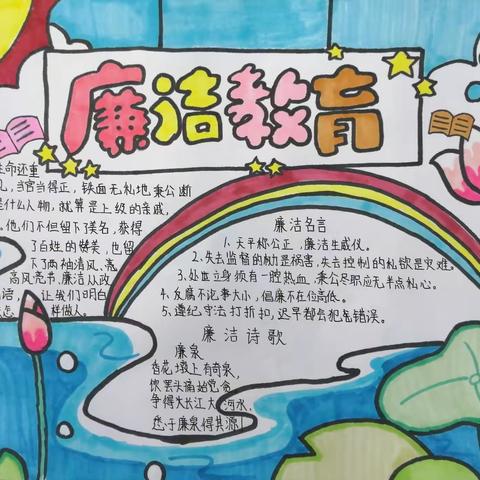 廉洁教育
生命还重
当官当得正,铁面无私地秉公断
是什么人物,就算是上级的亲戚,
他们不但留下了美名,获得
了百姓的赞美,也留
下了两袖清风、亮
高风亮节,廉洁从政
让我们明白
样做人。
廉洁名言
1、天平称公正,廉洁生威仪。
2、失去监督的权力是祸害,失去控制的私欲是灾难。
3、处世立身须有一腔热血,秉公尽职应无半点私心。
4、反腐不论事大小,倡廉不在位高低。
5、遵纪守法打折扣,迟早都会犯错误。
廉洁诗歌
廉泉
香花墩上有奇泉,
饮罢头痛始觉贪
争得失长江大河水,
尽于廉泉得其源!